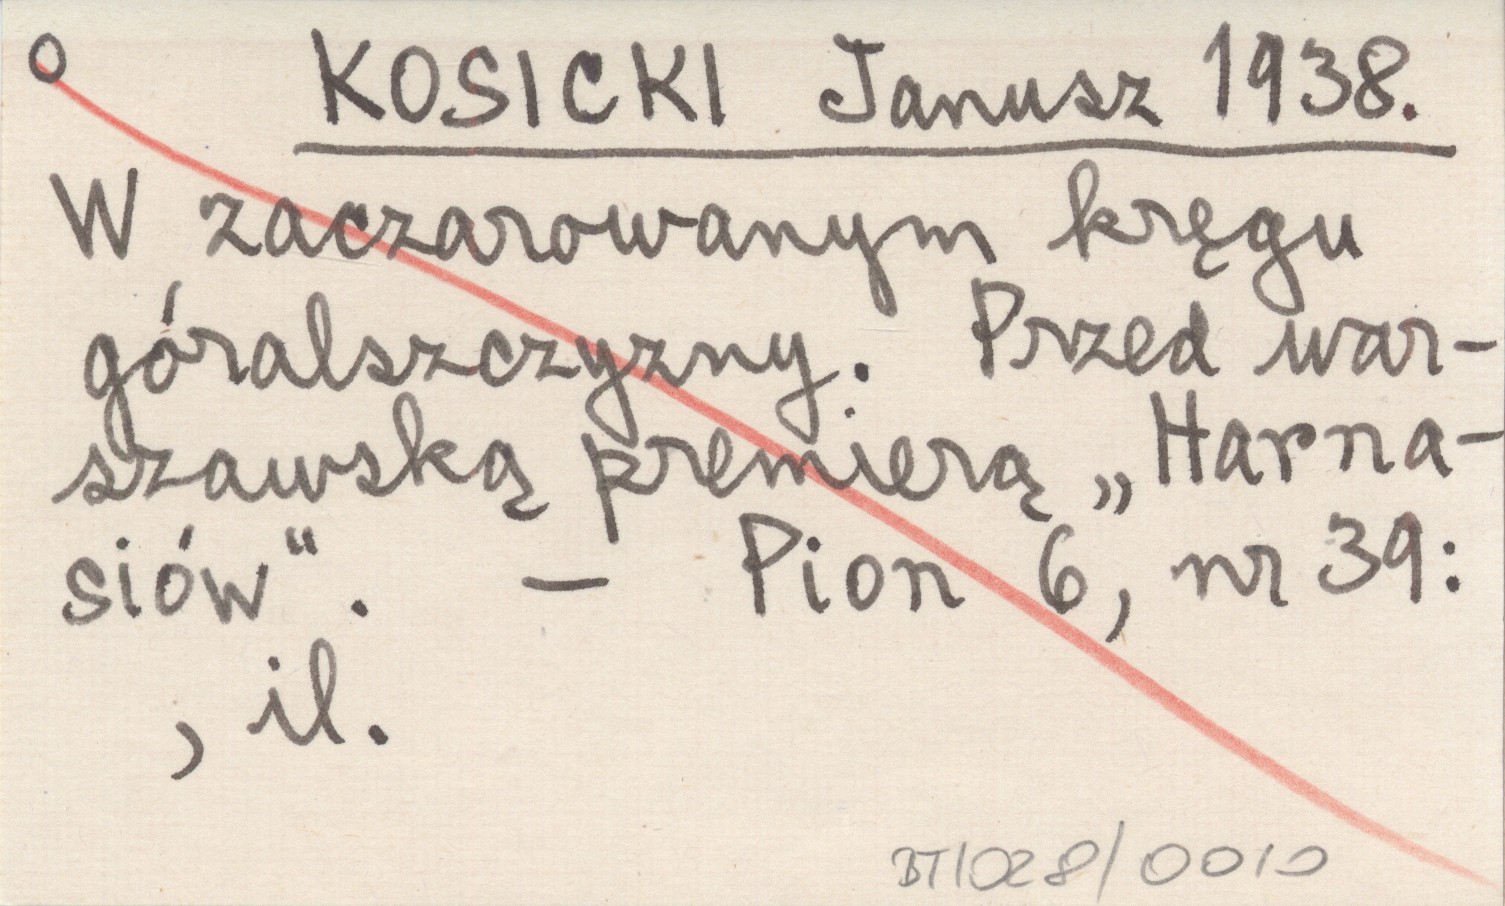 O KOSICKI Janusz 1938.
W zaczarowanym kręgu
góralszczyzny. Przed war-
szawską premierą „Harna-
siów“. — Pion 6, nr 39:
, il.
BT1028/0010